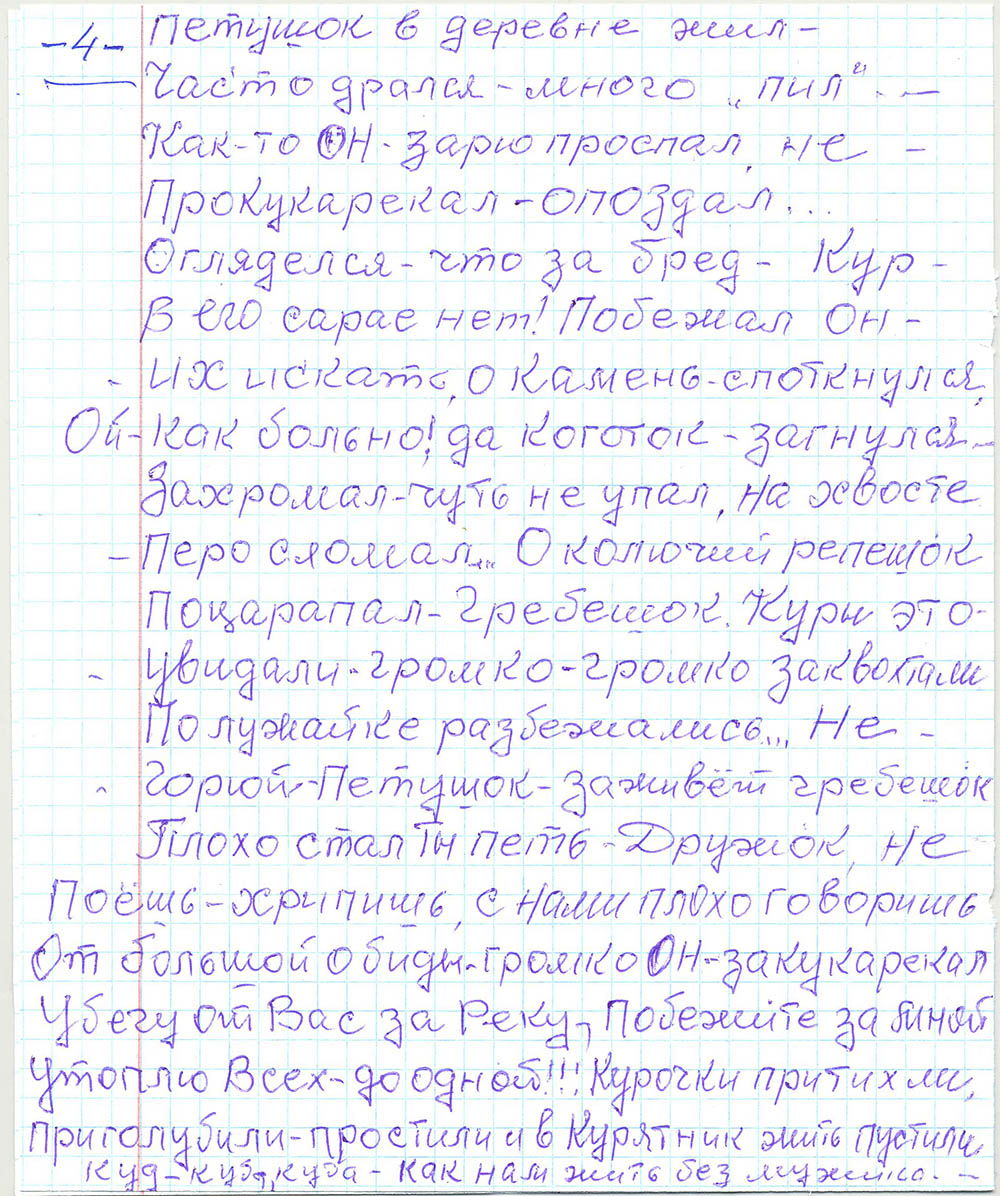 -4- Петушок в деревне жил-
Часто дрался-много „пил“--
Как-то Он-зарю проспал, не -
Прокукарекал-опоздал...
Огляделся-что за бред- Кур-
в его сарае нет! Побежал Он-
- их искать, о камень-споткнулся,
Ой-как больно! да коготок-загнулся-
Захромал-чуть не упал, на хвосте
- Перо сломал... О колючий репешок
Поцарапал-Гребешок. Куры это-
- увидали-громко-громко заквохтали
По лужайке разбежались... Не -
- Горюй-Петушок-заживёт гребешок
Плохо стал Ты петь-Дружок, не
Поёшь-хрипишь, с нами плохо говоришь
От большой обиды-громко Он-закукарекал
Убегу от Вас за Реку, Побежите за мной
Утоплю Всех-до одной!!! Курочки притихли,
Приголубили-простили и в Курятник жить пустили
куд-куда, куда-как нам жить без мужика.-